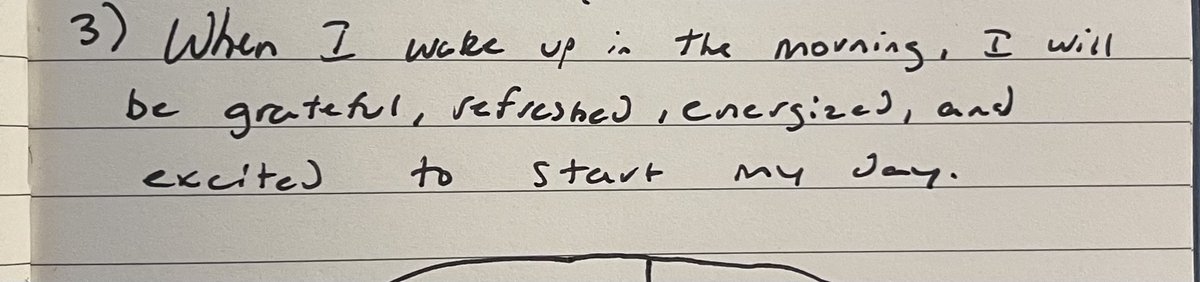 3) When I wake up in the morning, I will
be grateful, refreshed, energized, and
excited to start my day.